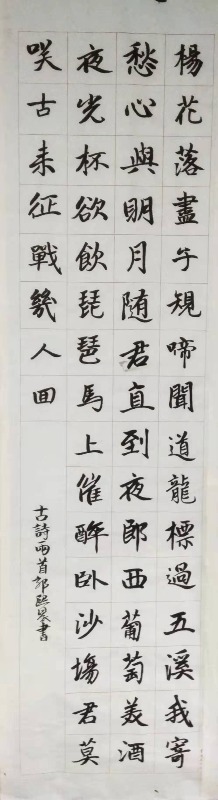 楊花落盡子規啼聞道龍標過五溪我寄
愁心與明月随君直到夜郎西葡萄美酒
夜光杯欲飲琵琶馬上催醉卧沙場君莫
咲古来征戰幾人回
古詩兩首郭熙書